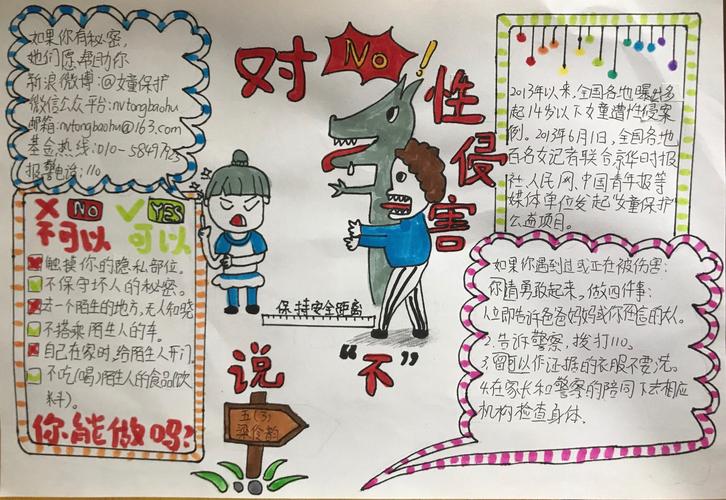 如果你有秘密,
他们愿帮助你
新浪微博:@女童保护
微信公众平台:nvtongbaohu
邮箱:nvtongbaohu@163.com
基金热线:010-
报警电话:110
对 No!
性侵害
说 “不”
2013年以来,全国各地曝出多
起14岁以下女童遭性侵案
例。2013年6月1日,全国各地
百名女记者联合京华时报
社、人民网、中国青年报等
媒体单位发起女童保护
公益项目。
NO YES
不可以 可以
触摸你的隐私部位。
不保守坏人的秘密。
去一个陌生的地方,无人知晓
不搭乘陌生人的车。
自己在家时,给陌生人开门。
不吃(喝)陌生人的食品(饮
料)。
你能做吗?
保持安全距离
五(3)
如果你遇到过或正在被伤害:
你请勇敢起来,做四件事:
1.立即告诉爸爸妈妈或你相信的大人。
2.告诉警察,拨打110。
3.留可以作证据的衣服不要洗。
4.在家长和警察的陪同下去相应
机构检查身体.